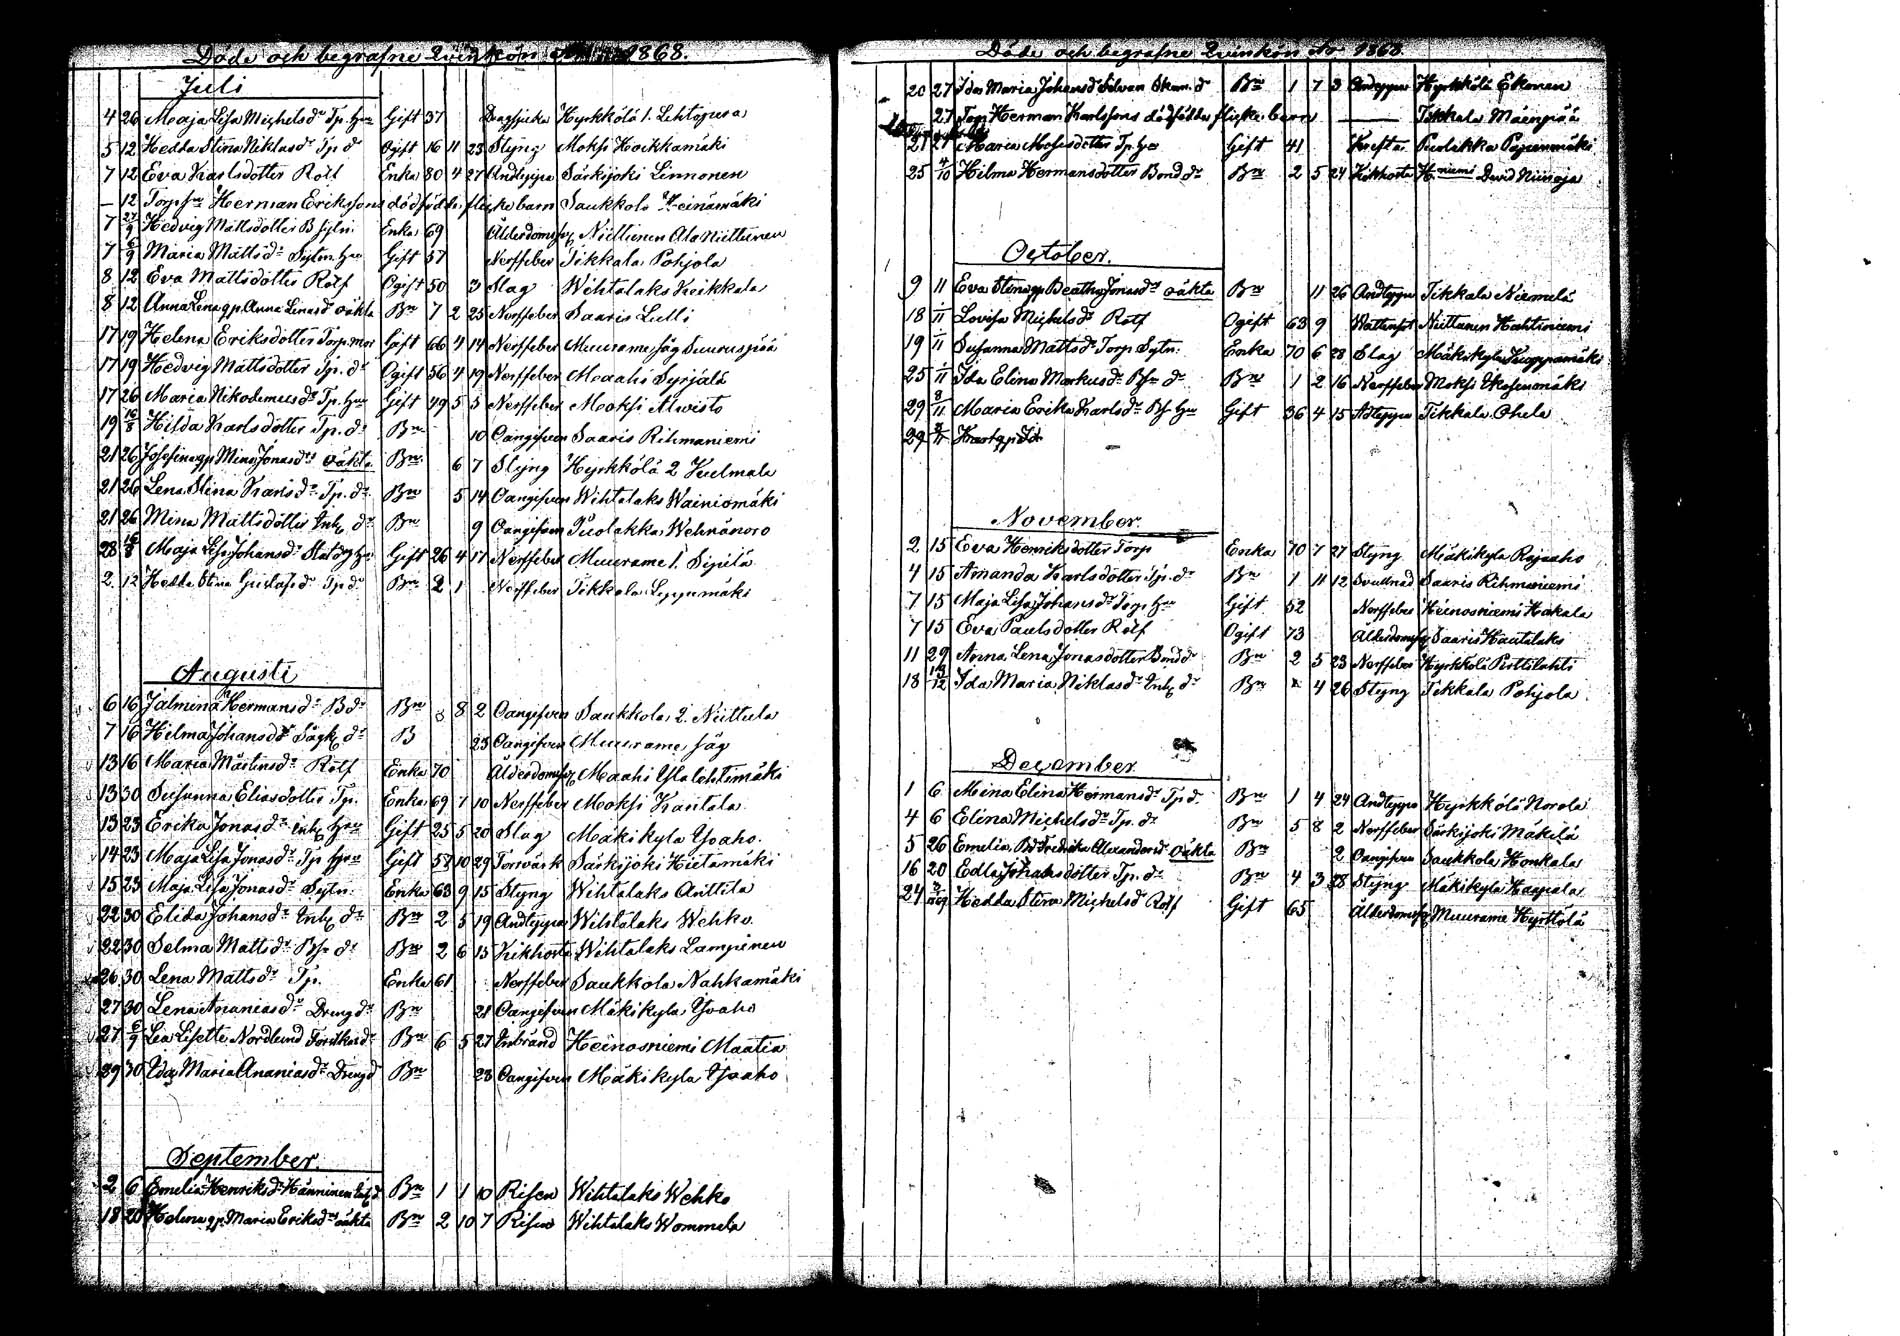 Döde och begrafne Qvinkön 1868.
Juli
4 26 Maja Lisa Michelsdr Tp. hu Gift 37 Dragsjuka Hyrkkölä 1. Lehtopera
5 12 Hedda Stina Niklasdr Tp. dr Ogift 16 11 23 Styng Moksi Hoikkamäki
7 12 Eva Karlsdotter Rotf Enka 80 4 27 Andtäppa Särkijoki Linnonen
– 12 Torpf Herman Erikssons dödfödde flickebarn Saukkola Heinämäki
7 27/9 Hedvig Mattsdotter B Sytn. Enka 69 Ålderdomsf Niittunen Ala Niittunen
7 6/9 Maria Mattsdr Sytn. hu Gift 57 Nerffeber Tikkala Pohjola
8 12 Eva Mattsdotter Rotf Ogift 50 3 Slag Wihtalaks Keikkala
8 12 Anna Lena gp. Anna Lenasd oäkta Bn 7 2 25 Nerffeber Saaris Lulli
17 19 Helena Eriksdotter Torp. mor Gift 66 4 14 Nerffeber Muurame Såg Suuruspää
17 19 Hedvig Mattsdotter Tp. dr Ogift 56 4 19 Nerffeber Maahi Syrjälä
17 26 Maria Nikodemusdr Tp. hu Gift 49 5 5 Nerffeber Moksi Alwisto
19 16/8 Hilda Karlsdotter Tp. dr Bn 10 Oangifven Saaris Rihmaniemi
21 26 Josefina gp Mina Jonasdr oäkta Bn 6 7 Styng Hyrkkölä 2 Kuulmala
21 26 Lena Stina Karlsdr Tp. dr Bn 5 14 Oangifven Wihtalaks Wainiomäki
21 26 Mina Mattsdotter Inh dr Bn 9 Oangifven Puolakka Wehnänoro
28 16/8 Maja Lisa Johansdr Gift 26 4 17 Nerffeber Muurame 1. Sipilä
2. 12 Hedda Stina Gustafsdr Tp dr Bn 2 1 Nerffeber Tikkala Leppämäki
Augusti
6 16 Jalmina Hermansdr B dr Bn 8 2 Oangifven Saukkola 2. Niittula
7 16 Hilma Johansdr Sågk dr B 23 Oangifven Muurame Såg
13 16 Maria Mårtensdr Rotf Enka 70 Ålderdomsf Maahi Ylalehtimäki
13 30 Susanna Eliasdotter Tp. Enka 69 7 10 Nerffeber Moksi Kantola
13 23 Erika Jonasdr Inh hu Gift 25 5 20 Slag Mäkikyla Yoaho
14 23 Maja Lisa Jonasdr Tp hu Gift 57 10 29 Torrvärk Särkijoki Hietamäki
15 23 Maja Lisa Jonasdr Sytn. Enka 63 9 15 Styng Wihtalaks Anttila
22 30 Elida Johansdr Inh dr Bn 2 5 19 Andtäppa Wihtalaks Wehko
22 30 Selma Mattsdr Bf dr Bn 2 6 15 Kikhosta Wihtalaks Lampinen
26 30 Lena Mattsdr Tp. Enka 61 Nerffeber Saukkola Nahkamäki
27 30 Lena Ananiasdr Dreng dr Bn 21 Oangifven Mäkikyla Yoaho
27 6/9 Lea Lisette Nordlund Bn 6 5 27 Inbränd Heinosniemi Maatia
29 30 Ida Maria Ananiasdr Dreng d Bn 28 Oangifven Mäkikyla Yoaho
September.
2 6 Emelia Henriksdr Hänninen Inh d Bn 1 1 10 Risen Wihtalaks Wehko
18 20 Helena gp Maria Eriksdr oäkta Bn 2 10 7 Risen Wihtalaks Wommela
Döde och begrafne Qvinkön År 1868.
20 27 Ida Maria Johansd Silvan Skom. dr Bn 1 7 3 Andteppa Hyrkkölä Ekonen
27 Torp Herman Karlssons dödfödde flicke barn Tikkala Mäenpää
21 27 Maria Mosesdotter Tp. hu Gift 41 Kräfta Puolakka Papinmäki
25 4/10 Hilma Hermansdotter Bond. dr Bn 2 5 24 Kikhosta H.niemi David Niinoja
October.
9 11 Eva Stina gp Beatha Jonasdr oäkta Bn 11 26 Andteppa Tikkala Niemelä
18 1/11 Lovisa Michelsdr Rotf Ogift 63 9 Wattensot Niittunen Hahtiniemi
19 1/11 Susanna Mattsdr Torp Sytn. Enka 70 6 28 Slag Mäkikyla Kuoppamäki
25 1/11 Ida Elina Markusdr Bf dr Bn 1 2 16 Nerffeber Moksi Ekosenmäki
29 8/11 Maria Erika Karlsdr Bf hu Gift 36 4 15 Adteppa Tikkala Ohela
29
November.
2 15 Eva Henriksdotter Torp Enka 70 7 27 Styng Mäkikyla Rajaaho
4 15 Amanda Karlsdotter Tp. dr Bn 1 11 12 Svullnad Saaris Rihmaniemi
7 15 Maja Lisa Johansdr Torp hu Gift 52 Nerffeber Heinosniemi Hakala
7 15 Eva Paulsdotter Rotf Ogift 73 Ålderdomsf Saaris Hautalaks
11 29 Anna Lena Jonasdotter Bond dr Bn 2 5 23 Nerffeber Hyrkkölä Pirttilahti
18 13/12 Ida Maria Niklasdr Inh dr Bn 4 26 Styng Tikkala Pohjola
December
1 6 Mina Elina Hermansdr Tp d. Bn 1 4 24 Andteppa Hyrkkölä Norola
4 6 Elina Michelsdr Tp. dr Bn 5 8 2 Nerffeber Särkijoki Mäkilä
5 26 Emelia Fredrika Alexandersd oäkta Bn 2 Oangifven Saukkola Honkala
16 20 Edla Johansdotter Tp. dr Bn 4 3 28 Styng Mäkikyla Haapala
24 Hedda Stina Michelsd Rotf Gift 65 Ålderdomsf Muurame Hyrttölä